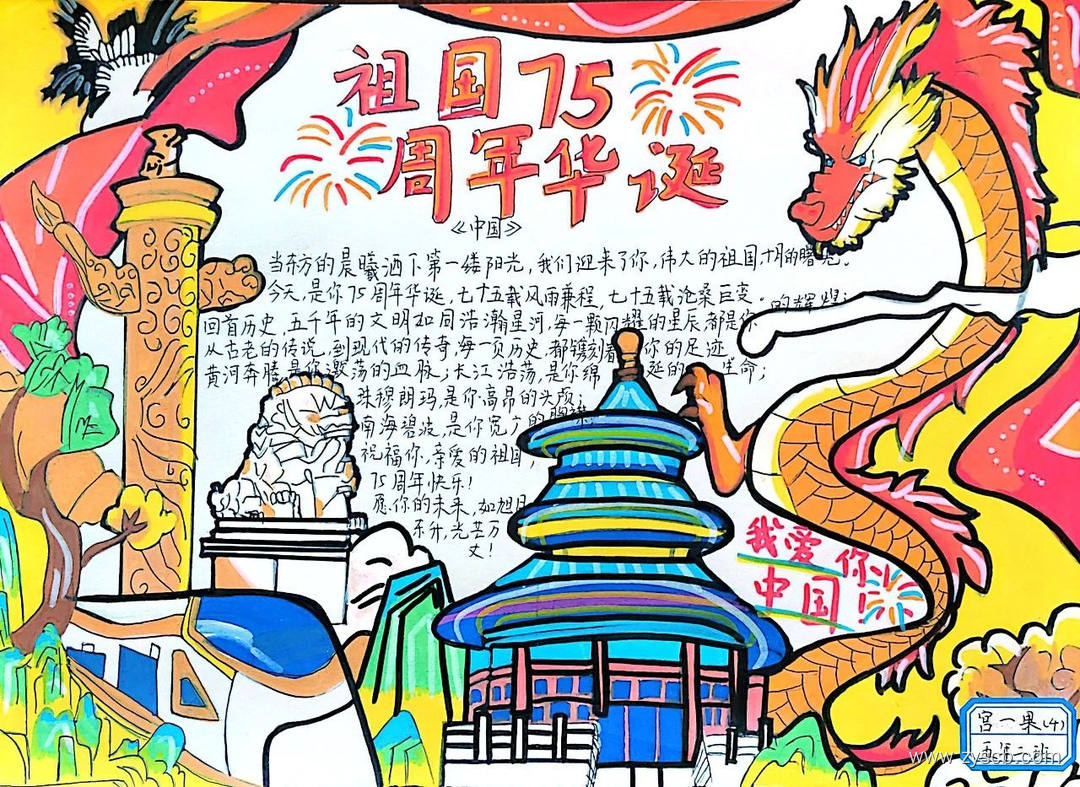 祖国75
周年华诞
《中国》
当东方的晨曦洒下第一缕阳光,我们迎来了你,伟大的祖国十月的曙光。
今天,是你75周年华诞,七十五载风雨兼程,七十五载沧桑巨变。
回首历史,五千年的文明如同浩瀚星河,每一颗闪耀的星辰都是你的辉煌;
从古老的传说,到现代的传奇,每一页历史,都镌刻着你的足迹
黄河奔腾,是你激荡的血脉;长江浩荡,是你绵延的生命;
珠穆朗玛,是你高昂的头颅;
南海碧波,是你宽广的胸襟
祝福你,亲爱的祖国,
75周年快乐!
愿你的未来,如旭日
东升,光芒万
丈!
我爱你
中国!
宫一果(4)
五年二班
www.zyscb.com